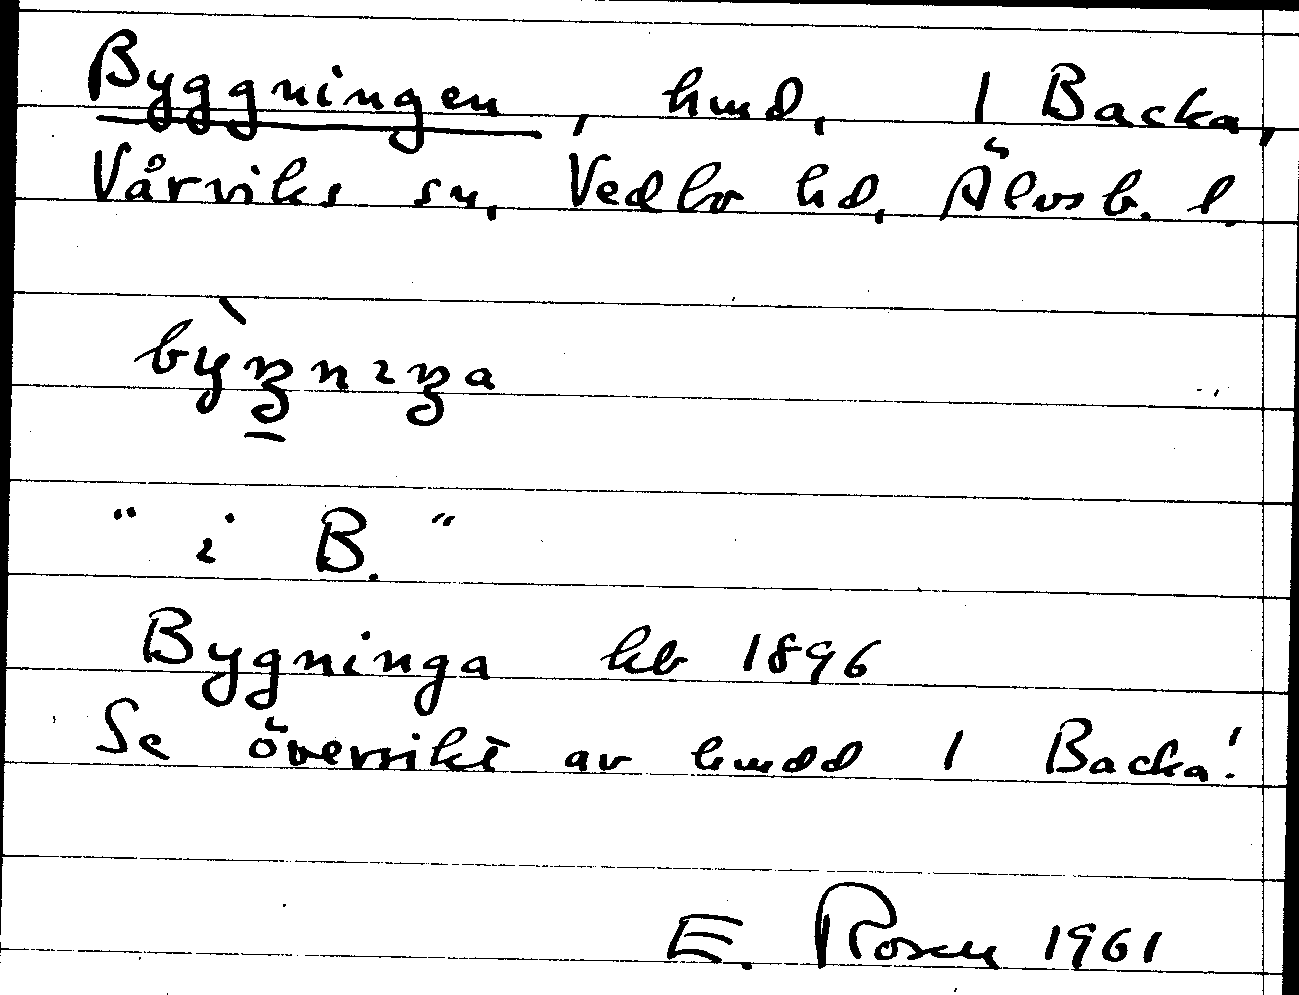 Byggningen, hmd, 1 Backa,
Vårviks sn, Vedbo hd, Älvsb. l.
bỳŋnıŋa
"i B."
Bygninga hb 1896
Se översikt av hmdd 1 Backa!
E. Rosen 1961